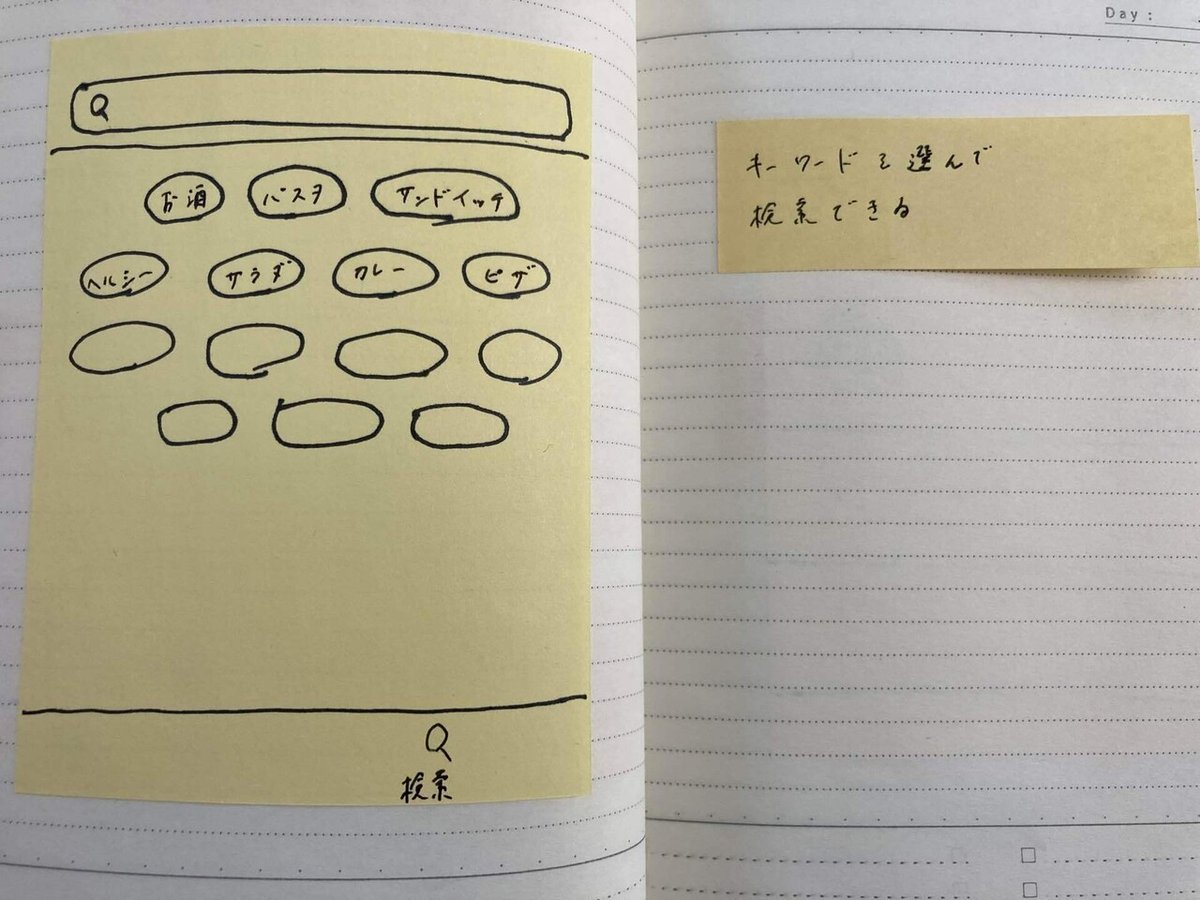 お酒 パスタ サンドイッチ
ヘルシー サラダ カレー ピザ
検索
Day:
キーワードを選んで
検索できる